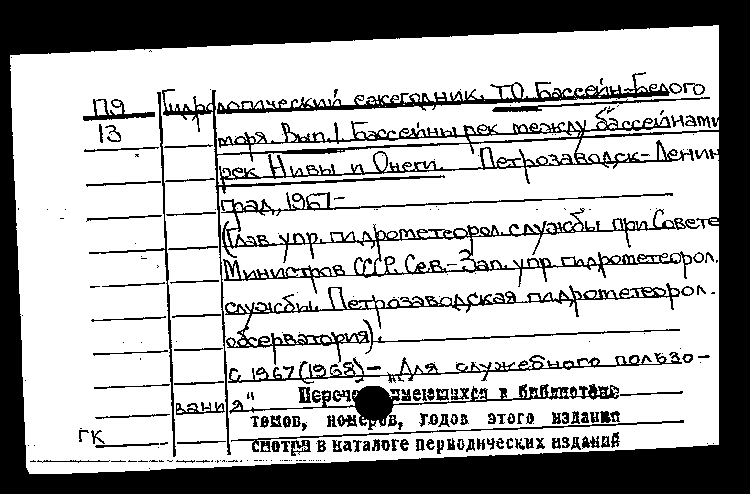 П9 Гидрологический ежегодник. Т.О. Бассейн Белого
13 моря. Вып.1 Бассейны рек между бассейнами
рек Нивы и Онеги. Петрозаводск-Ленин
град, 1967-
(Глав. упр. гидрометеорол. службы при Совете
Министров СССР. Сев.-Зап. упр. гидрометеорол.
службы. Петрозаводская гидрометеорол.
обсерватория).
С 1967 (1968) - „Для служебного пользо-
вания".
Перече имеющихся в библиотеке
томов, номеров, годов этого издания
ГК смотри в каталоге периодических изданий